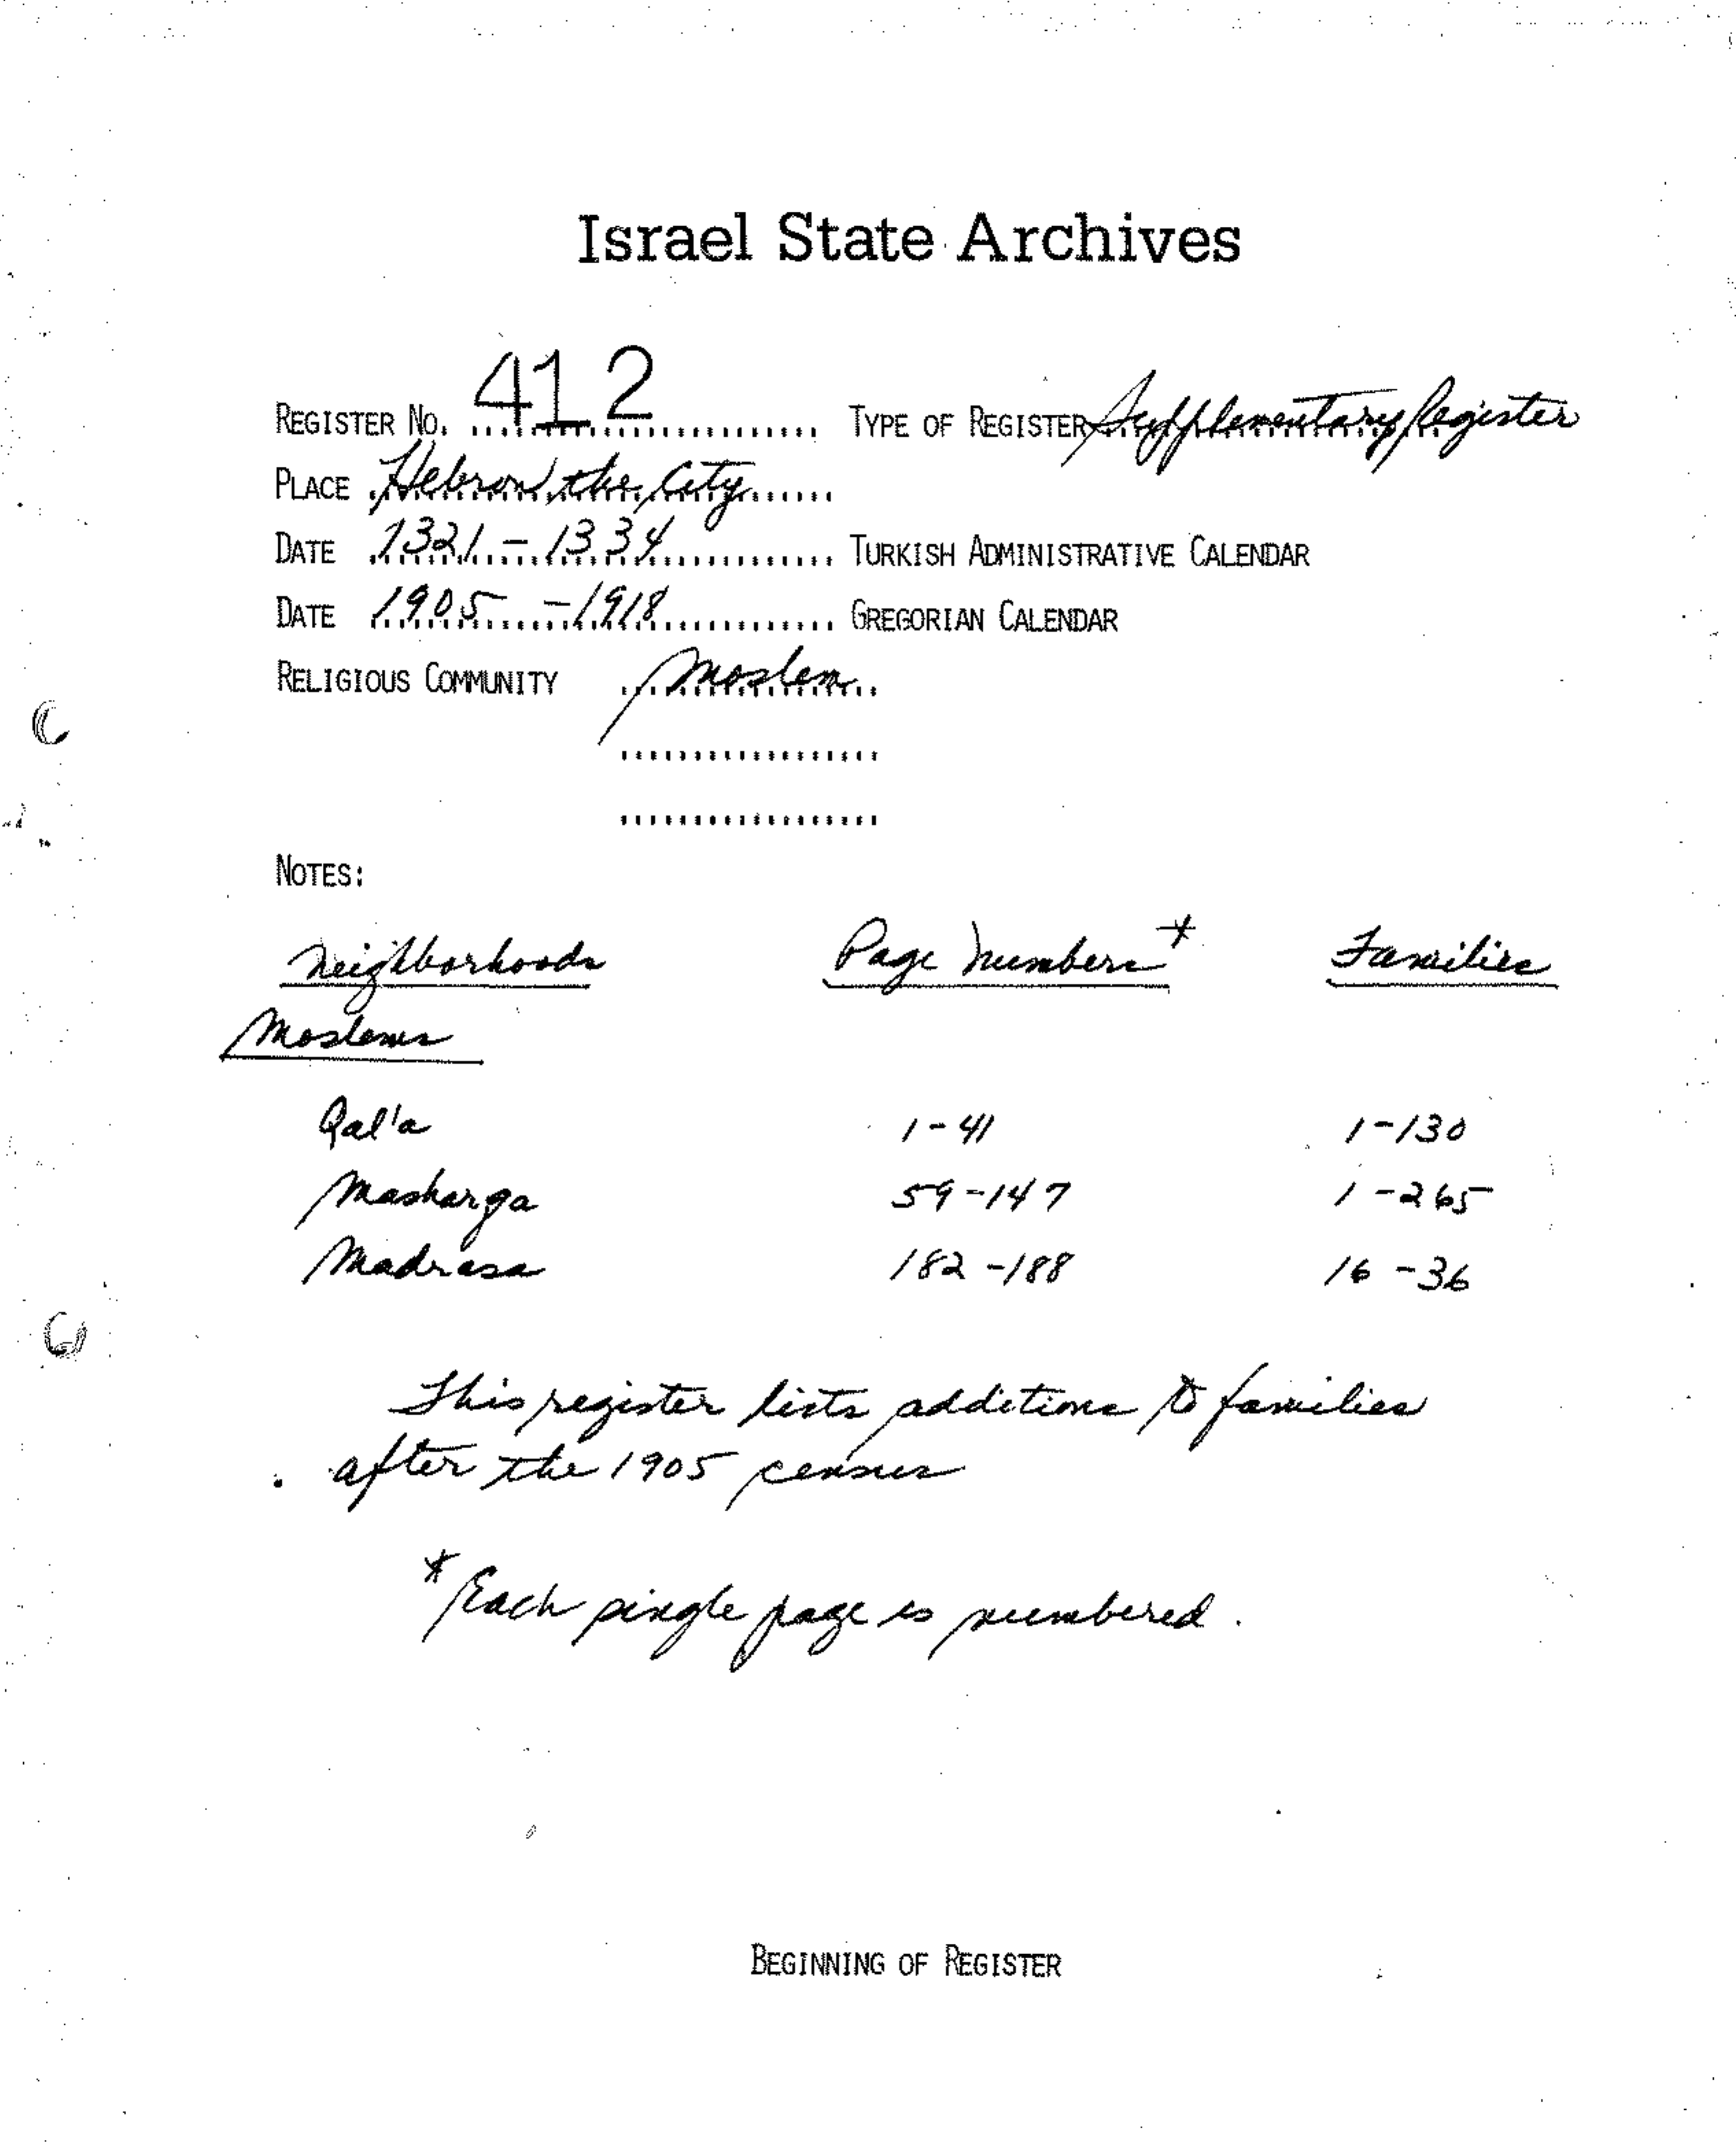 Israel State Archives
REGISTER NO. 412 TYPE OF REGISTER Supplementary Register
PLACE Hebron, the City
DATE 1321 - 1334 TURKISH ADMINISTRATIVE CALENDAR
DATE 1905 - 1918 GREGORIAN CALENDAR
RELIGIOUS COMMUNITY Moslem
NOTES:
Neighborhoods Page Numbers * Families
Moslems
Qal'a 1-41 1-130
Masharqa 59-147 1-265
Madrasa 182-188 16-36
This register lists additions to families
after the 1905 census
* Each single page is numbered.
BEGINNING OF REGISTER